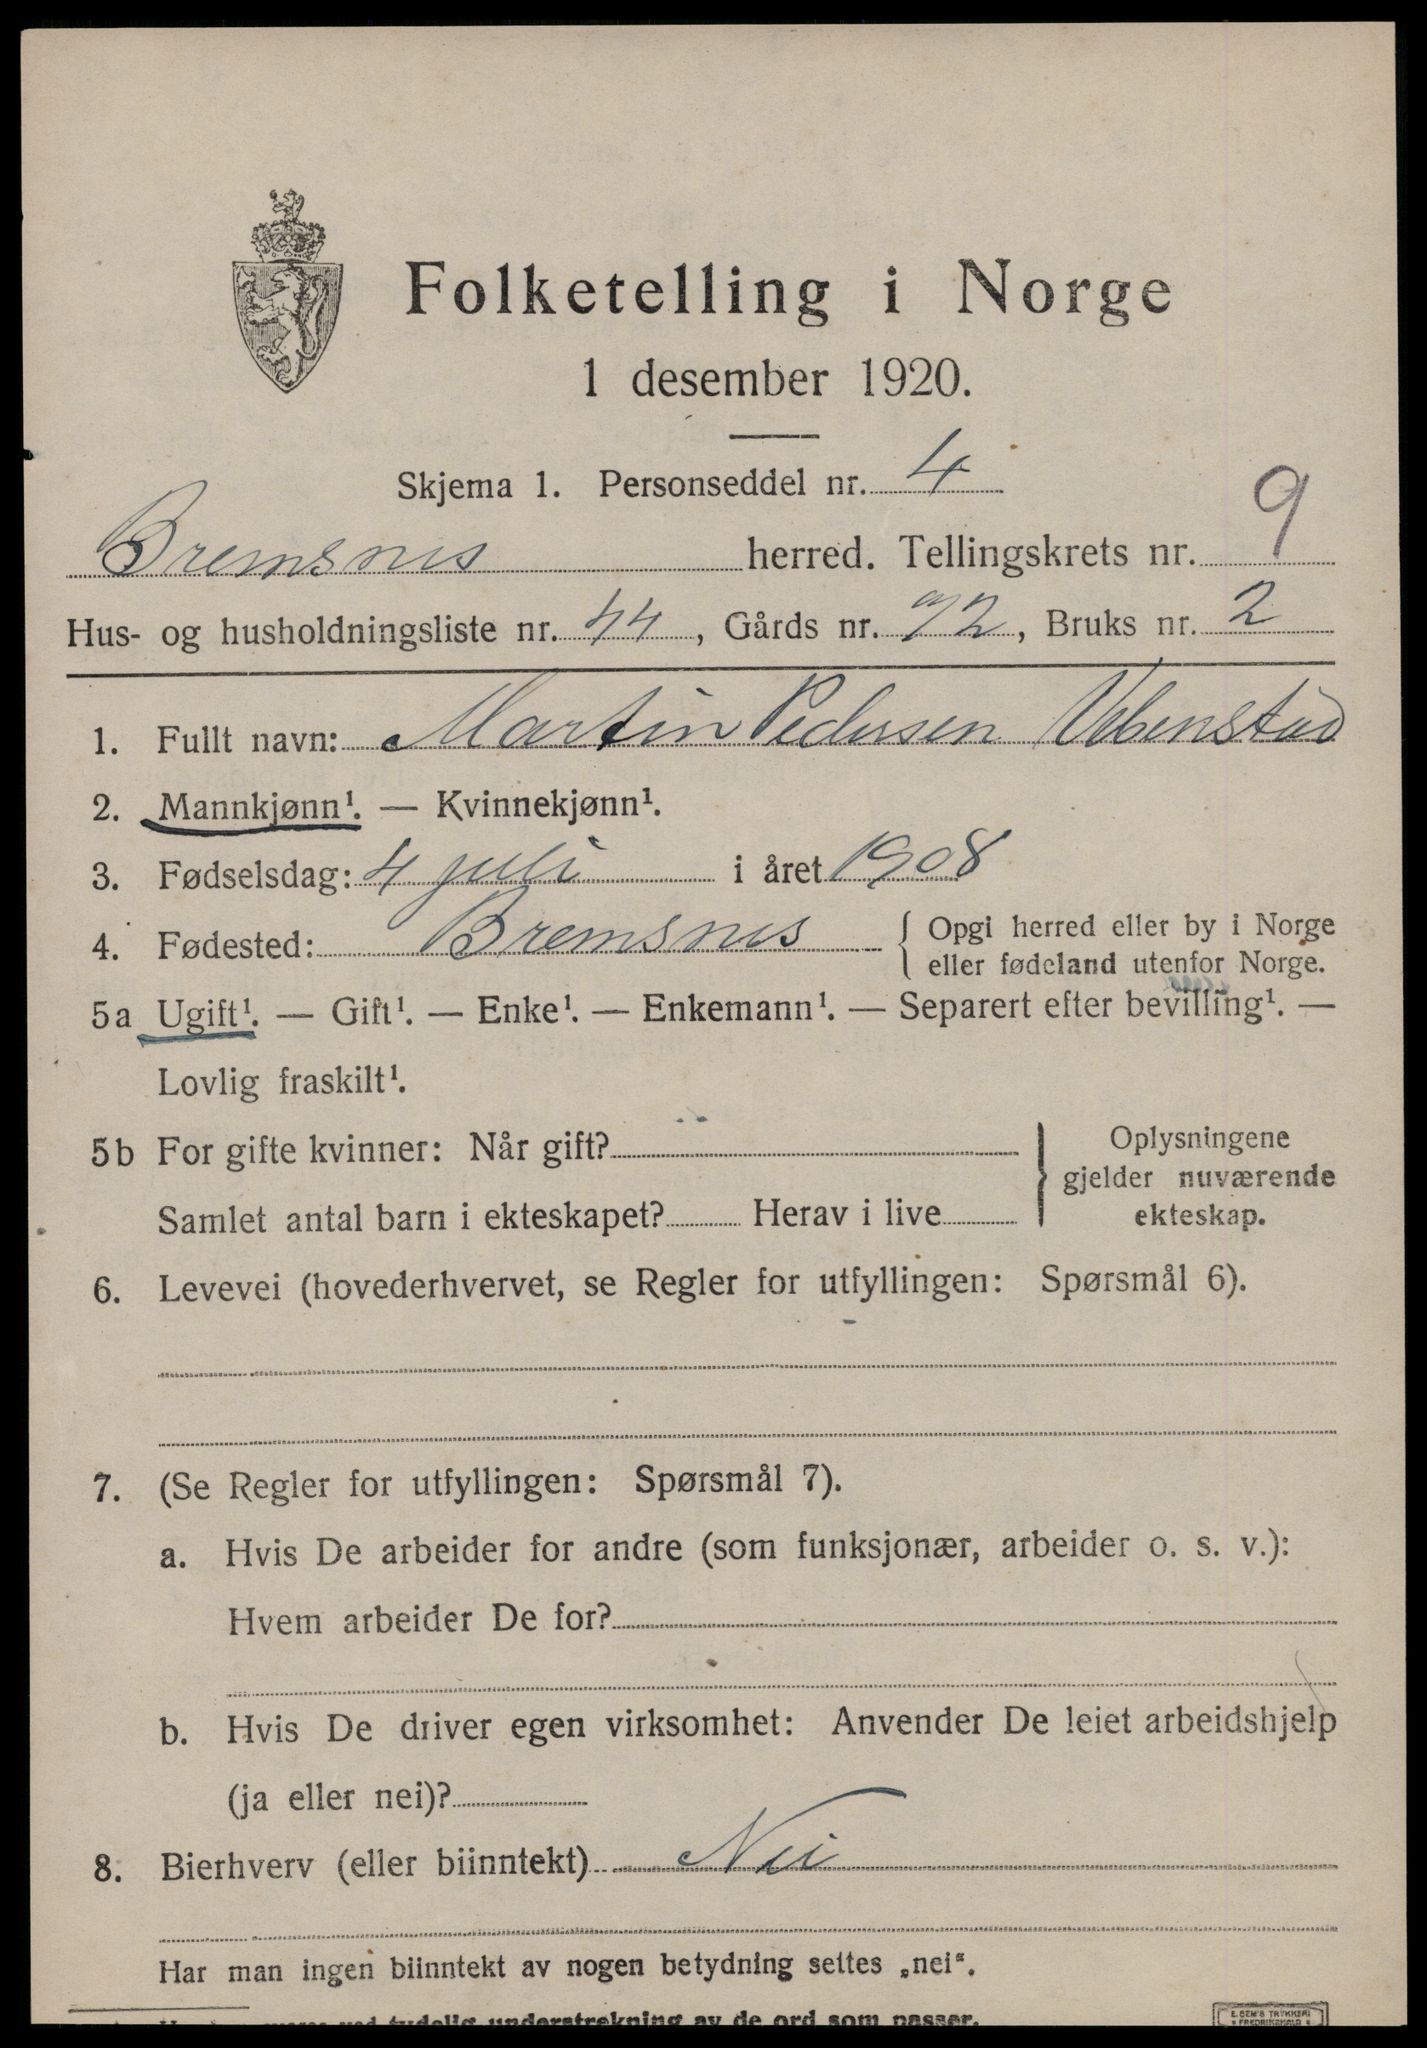 Folketelling i Norge
1 desember 1920.
Skjema 1. Personseddel nr. 4
Bremsnes herred. Tellingskrets nr. 9
Hus- og husholdningsliste nr. 44, Gårds nr. 72, Bruks nr. 2
1. Fullt navn: Martin Pedersen Vebenstad
2. Mannkjønn¹. — Kvinnekjønn¹.
3. Fødselsdag: 4 juli i året 1908
4. Fødested: Bremsnes { Opgi herred eller by i Norge
eller fødeland utenfor Norge.
5a Ugift¹. — Gift¹. — Enke¹. — Enkemann¹. — Separert efter bevilling¹. —
Lovlig fraskilt¹.
5b For gifte kvinner: Når gift?
Samlet antal barn i ekteskapet? Herav i live
} Oplysningene
gjelder nuværende
ekteskap.
6. Levevei (hovederhvervet, se Regler for utfyllingen: Spørsmål 6).
7. (Se Regler for utfyllingen: Spørsmål 7).
a. Hvis De arbeider for andre (som funksjonær, arbeider o. s. v.):
Hvem arbeider De for?
b. Hvis De driver egen virksomhet: Anvender De leiet arbeidshjelp
(ja eller nei)?
8. Bierhverv (eller biinntekt) Nei
Har man ingen biinntekt av nogen betydning settes „nei".
ved tydelig understrekning av de ord som passer.
E. SEM'S TRYKKERI
FREDRIKSHALD